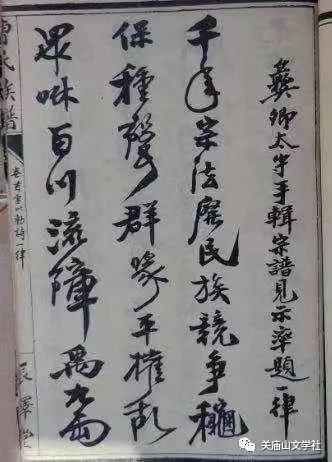 卿太守手輯宗譜見示率題一律
千年宗法廢民族競爭穐
保種聲群平權亂
眾咻百川流障禹
氏族譜
卷首
詩一律
关庙山文学社